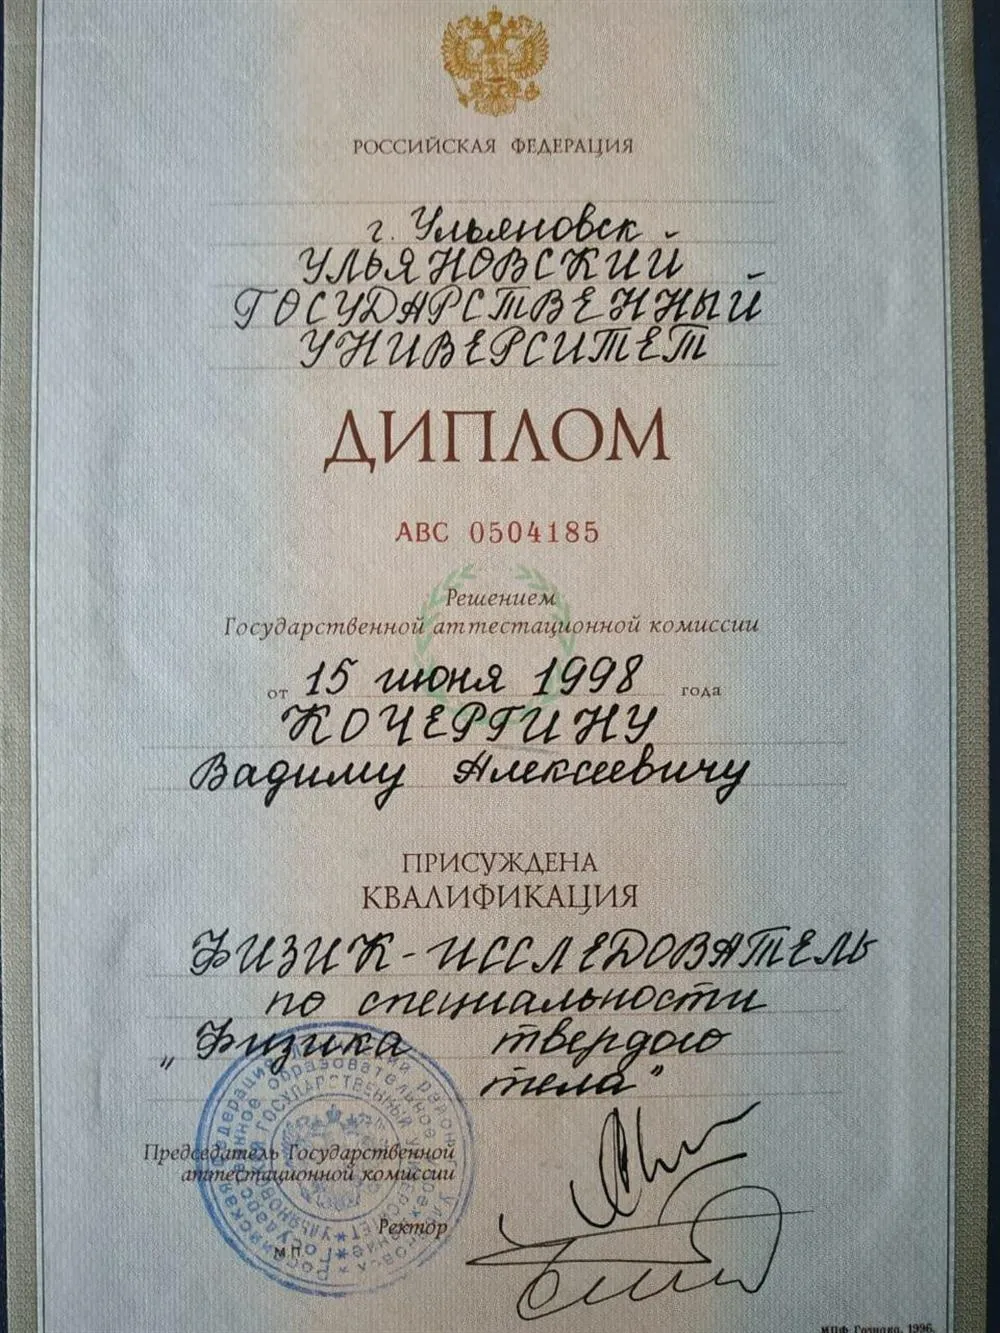 РОССИЙСКАЯ ФЕДЕРАЦИЯ
г. Ульяновск
УЛЬЯНОВСКИЙ
ГОСУДАРСТВЕННЫЙ
УНИВЕРСИТЕТ
ДИПЛОМ
АВС 0504185
Решением
Государственной аттестационной комиссии
от 15 июня 1998 года
КОЧЕРГИНУ
Вадиму Алексеевичу
ПРИСУЖДЕНА
КВАЛИФИКАЦИЯ
ФИЗИК-ИССЛЕДОВАТЕЛЬ
по специальности
„Физика твердого
тела"
Председатель Государственной
аттестационной комиссии
Ректор
МП
МПФ Гознака. 1996.